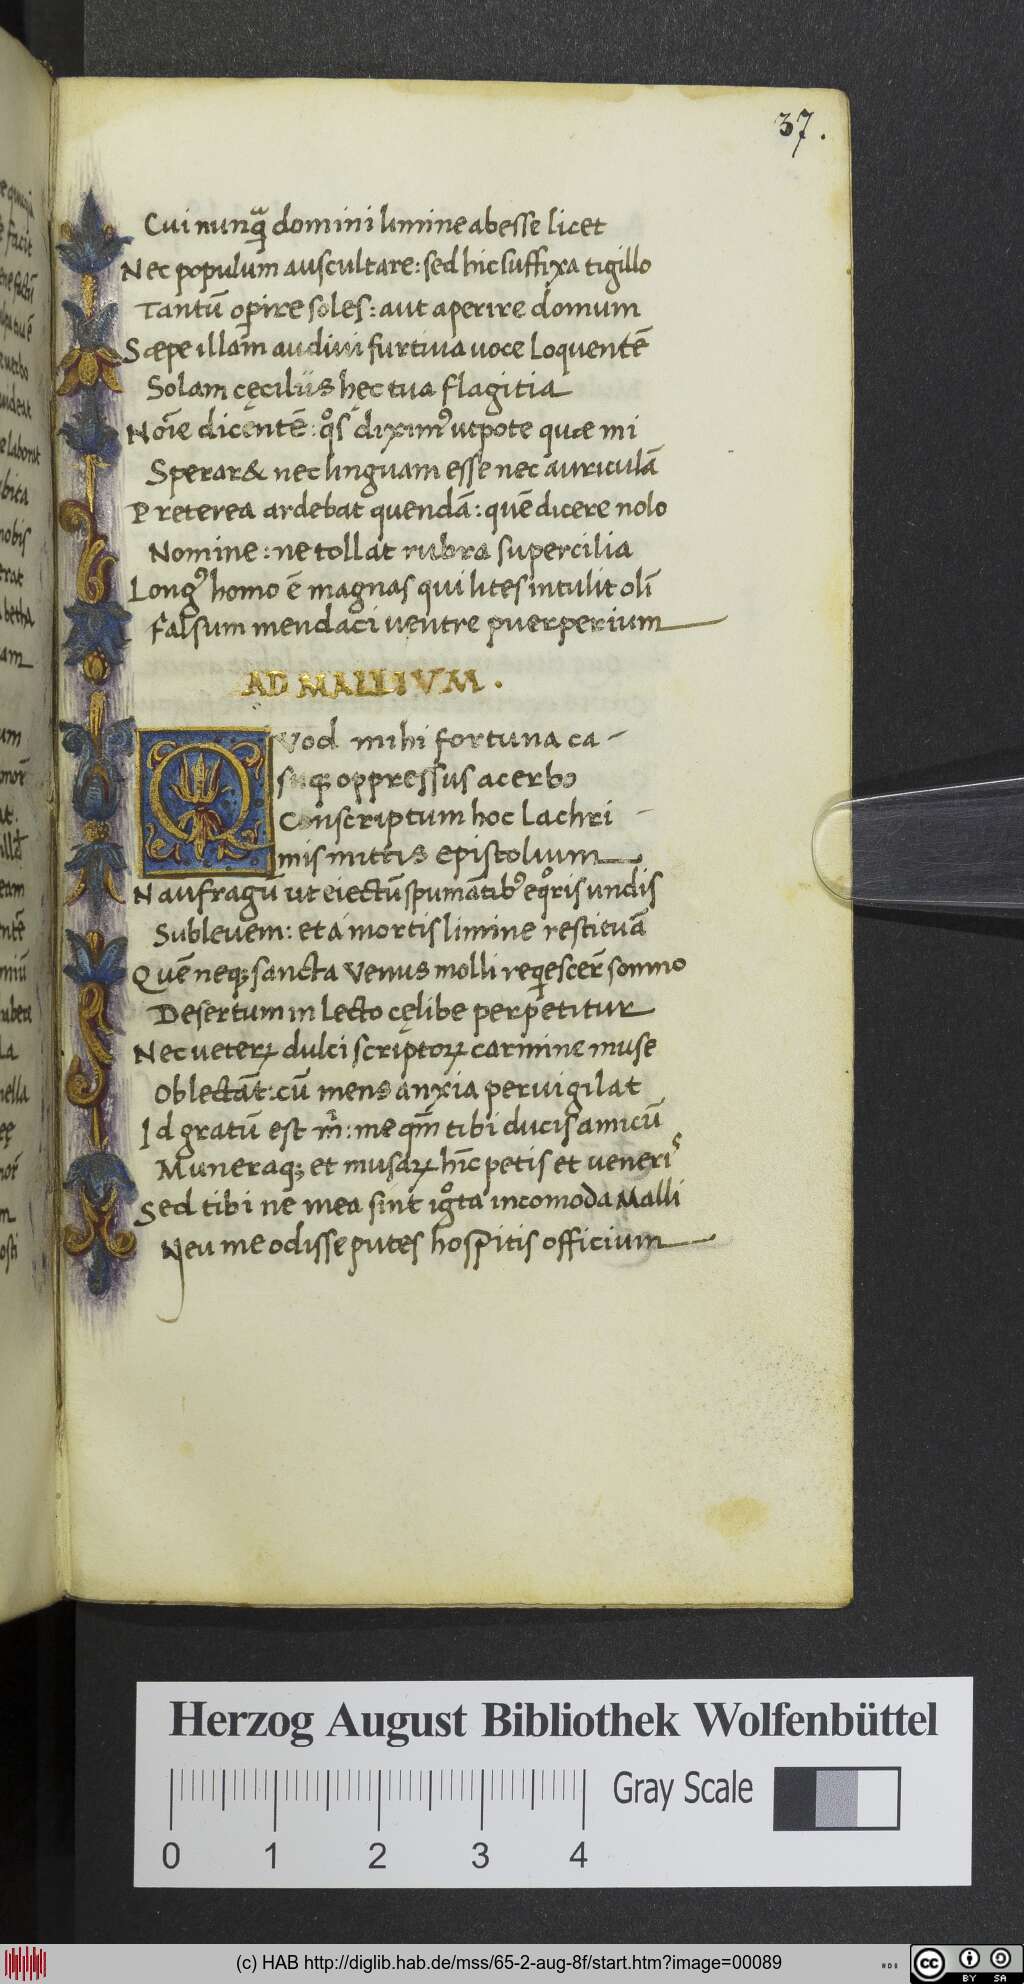 37.
Cui nunq̄ domini limine abesse licet
Nec populum auscultare: sed hic suffixa tigillo
Tantū opire soles: aut aperire domum
Sæpe illam audivi furtiua uoce loquentē
Solam cęciliis hęc tua flagitia
Noīe dicentē: q̊s diximꝰ utpote quæ mi
Sperar& nec linguam esse nec auriculā
Preterea ardebat quendā: quē dicere nolo
Nomine: ne tollat rubra supercilia
Longꝰ homo ē magnas qui lites intulit olī
Falsum mendaci uentre puerperium
AD MALLIVM.
QVod mihi fortuna ca-
suqꝫ oppressus acerbo
Conscriptum hoc lachri-
mis mittis epistolium
Naufragū ut eiectū spumātibꝰ eq̊ris undis
Subleuem: et á mortis limine restituā
Quē neqꝫ sancta Venus molli reqescer̄ somno
Desertum in lecto cęlibe perpetitur
Nec ueterꝝ dulci scriptorꝝ carmine muse
Oblectāt: cū mens anxia peruigilat
Id gratū est m̄: me qm̄ tibi ducis amicū
Muneraqꝫ et musaꝝ hīc petis et ueneris
Sed tibi ne mea sint ig̊ta incomoda Malli
Neu me odisse putes hospitis officium
Herzog August Bibliothek Wolfenbüttel
Gray Scale
0 1 2 3 4
(c) HAB http://diglib.hab.de/mss/65-2-aug-8f/start.htm?image=00089
HAB
cc BY SA